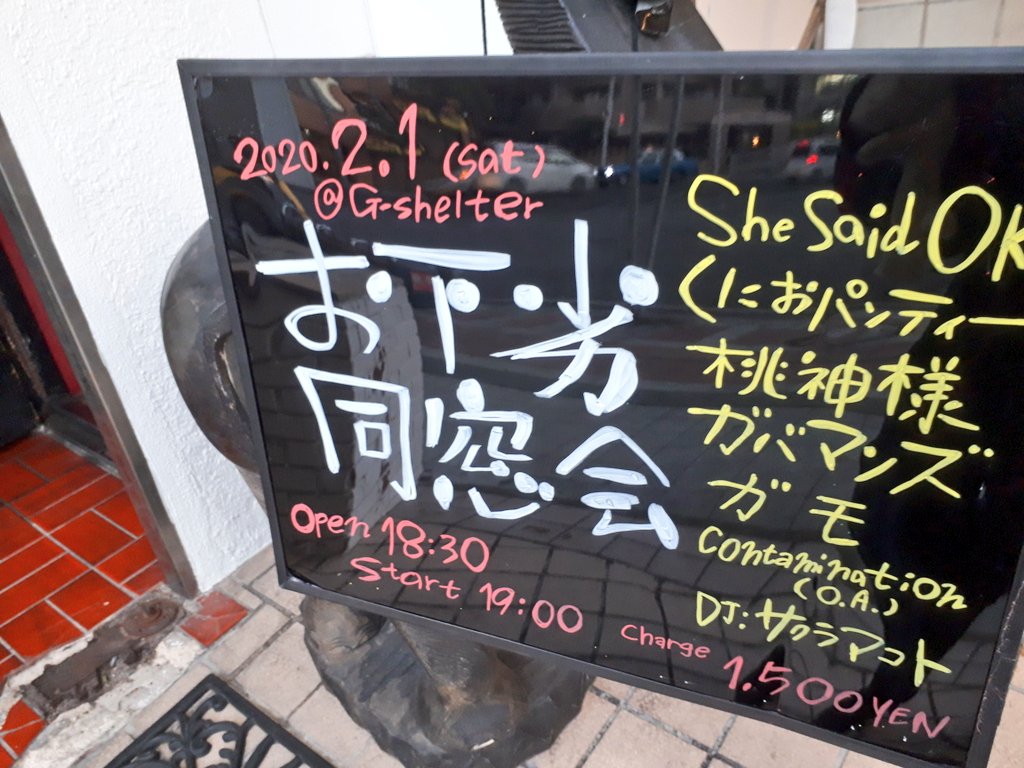 2020.2.1 (Sat)
@G-shelter
お下劣
同窓会
Open 18:30
Start 19:00
She Said OK
くにおパンティー
桃神様
ガバマンズ
ガモ
Contamination
(O.A.)
DJ:サクラマコト
Charge 1.500YEN